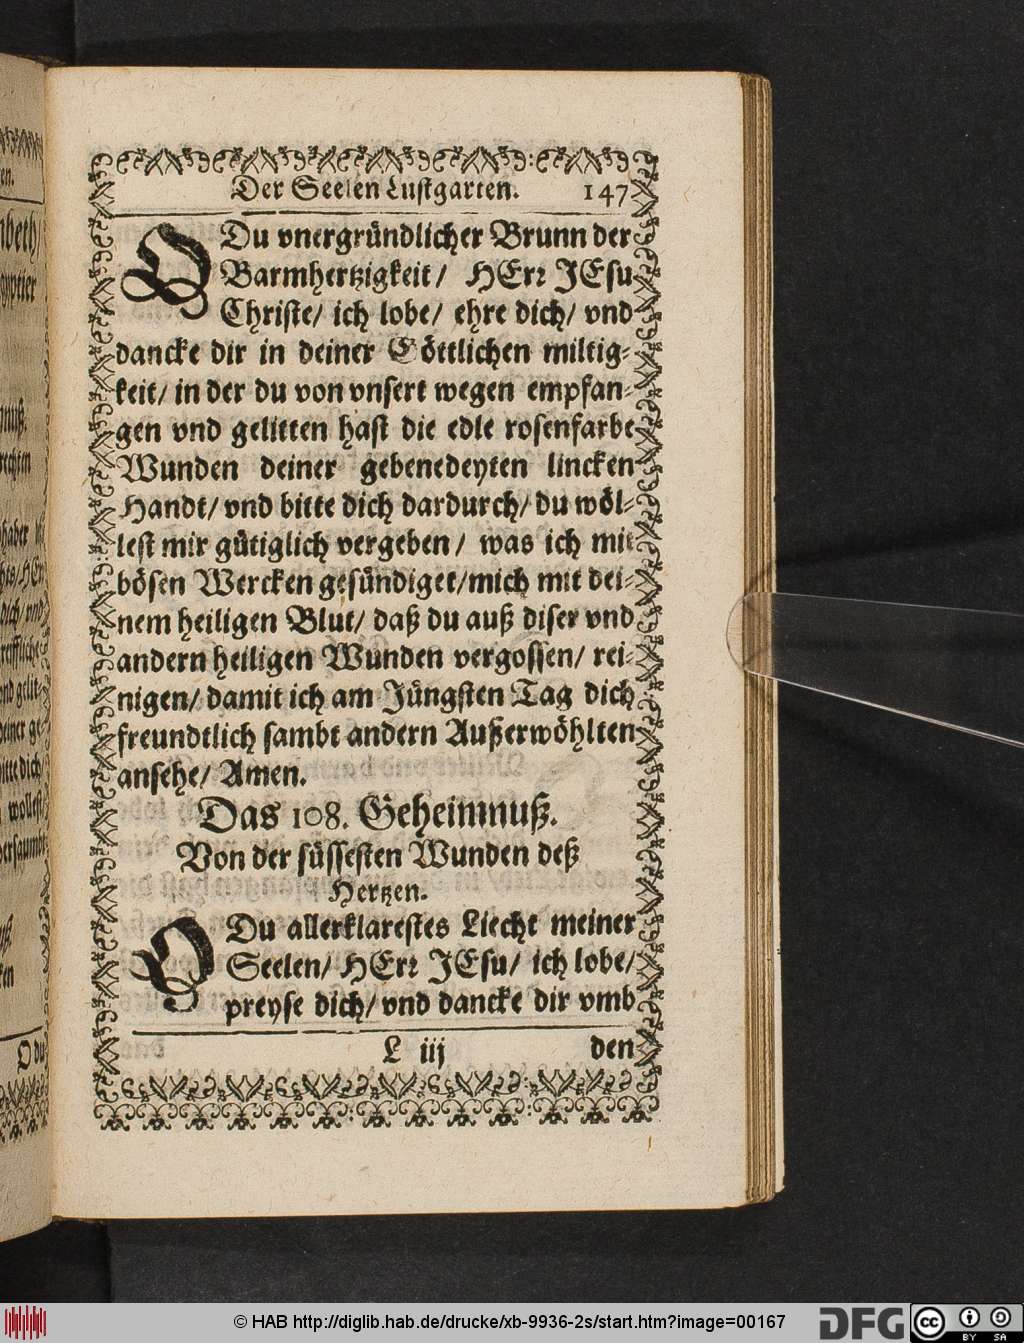 Der Seelen Lustgarten. 147
O Du vnergründlicher Brunn der
Barmhertzigkeit/ HErr JEsu
Christe/ ich lobe/ ehre dich/ vnd
dancke dir in deiner Göttlichen miltig-
keit/ in der du von vnsert wegen empfan-
gen vnd gelitten hast die edle rosenfarbe
Wunden deiner gebenedeyten lincken
Handt/ vnd bitte dich dardurch/ du wöl-
lest mir gütiglich vergeben/ was ich mit
bösen Wercken gesündiget/ mich mit dei-
nem heiligen Blut/ daß du auß diser vnd
andern heiligen Wunden vergossen/ rei-
nigen/ damit ich am Jüngsten Tag dich
freundtlich sambt andern Außerwöhlten
ansehe/ Amen.
Das 108. Geheimnuß.
Von der süssesten Wunden deß
Hertzen.
O Du allerklarestes Liecht meiner
Seelen/ HErr JEsu/ ich lobe/
preyse dich/ vnd dancke dir vmb
L iij den
© HAB http://diglib.hab.de/drucke/xb-9936-2s/start.htm?image=00167
DFG
cc BY SA